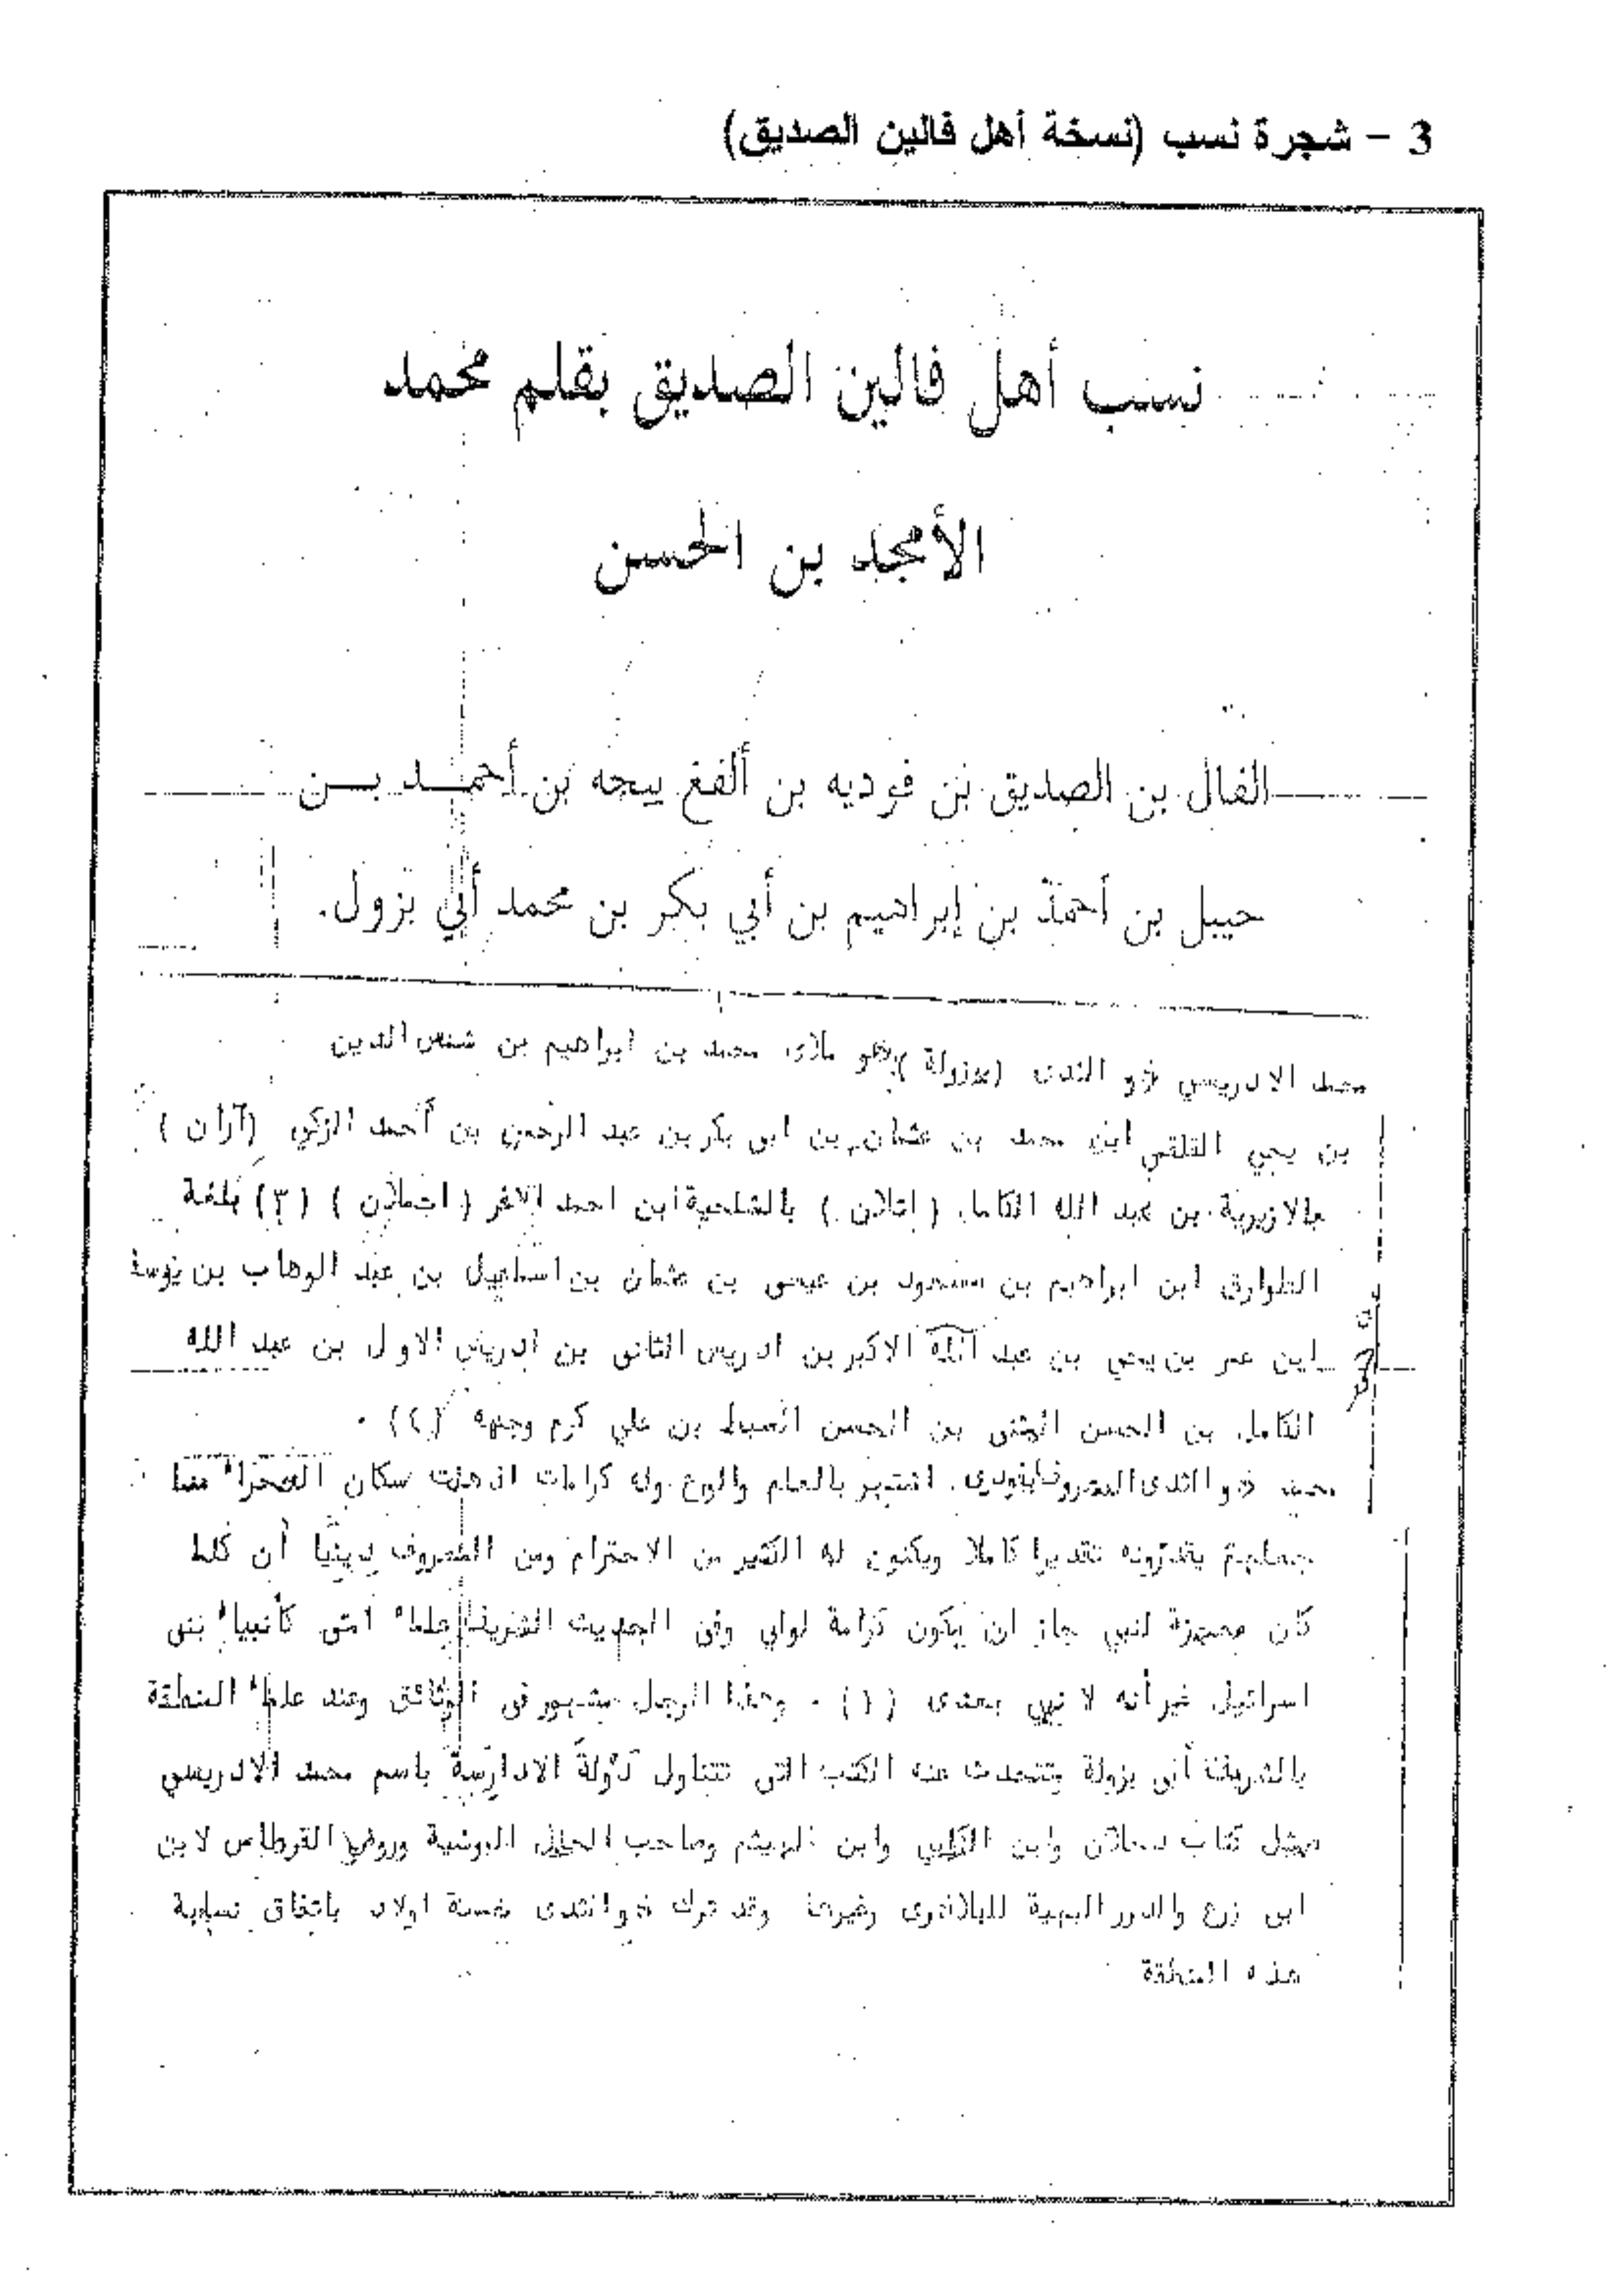 3 - شجرة نسب (نسخة أهل فالين الصديق)
نسب أهل فالين الصديق بقلم محمد
الأمجد بن الحسن
الفال بن الصديق بن فوديه بن ألفغ يبجه بن أحمد بن
حيبل بن أحمد بن إبراهيم بن أبي بكر بن محمد أبي بزول.
محمد الادريسي ذو الندى (بوزولة) هو مولاى محمد بن ابراهيم بن شمس الدين
بن يحي القلقمي ابن محمد بن عثمان بن ابى بكر بن عبد الرحمن بن أحمد الزكي (آران)
بالازيرية بن عبد الله الكامل (اتلان) بالشلحية ابن احمد الاغر (اجملان) (٣) بلغة
الطوارق ابن ابراهيم بن مسعود بن عيسى بن عثمان بن اسماعيل بن عبد الوهاب بن يوسف
ابن عمر بن يحي بن عبد الله الاكبر بن ادريس الثانى بن ادريس الاول بن عبد الله
الكامل بن الحسن المثنى بن الحسن السبط بن علي كرم وجهه
محمد ذو الندى المعروف اشتهر بالعلم والورع وله كرامات اذهلت سكان الصحراء مما
جعلهم يقدرونه تقديرا كاملا ويكنون له الكثير من الاحترام ومن المعروف دينيا أن كلما
كان معجزة لنبي جاز ان يكون كرامة لولي وفى الحديث الشريف علماء امتى كأنبياء بنى
اسرائيل غير أنه لا نبي بعدى (١) . وهذا الرجل مشهور فى الوثائق وعند علماء المنطقة
بالشريف أبى بزولة وتتحدث عنه الكتب التى تتناول دولة الادارسة باسم محمد الادريسي
مثل كتاب وابن الكلبي وابن الهيثم وصاحب الحلل الموشية وروض القرطاس لابن
ابى زرع والدرر البهية للبلاذورى وغيرها وقد ترك ذو الندى خمسة اولاد باتفاق نسابة
هذه المنطقة